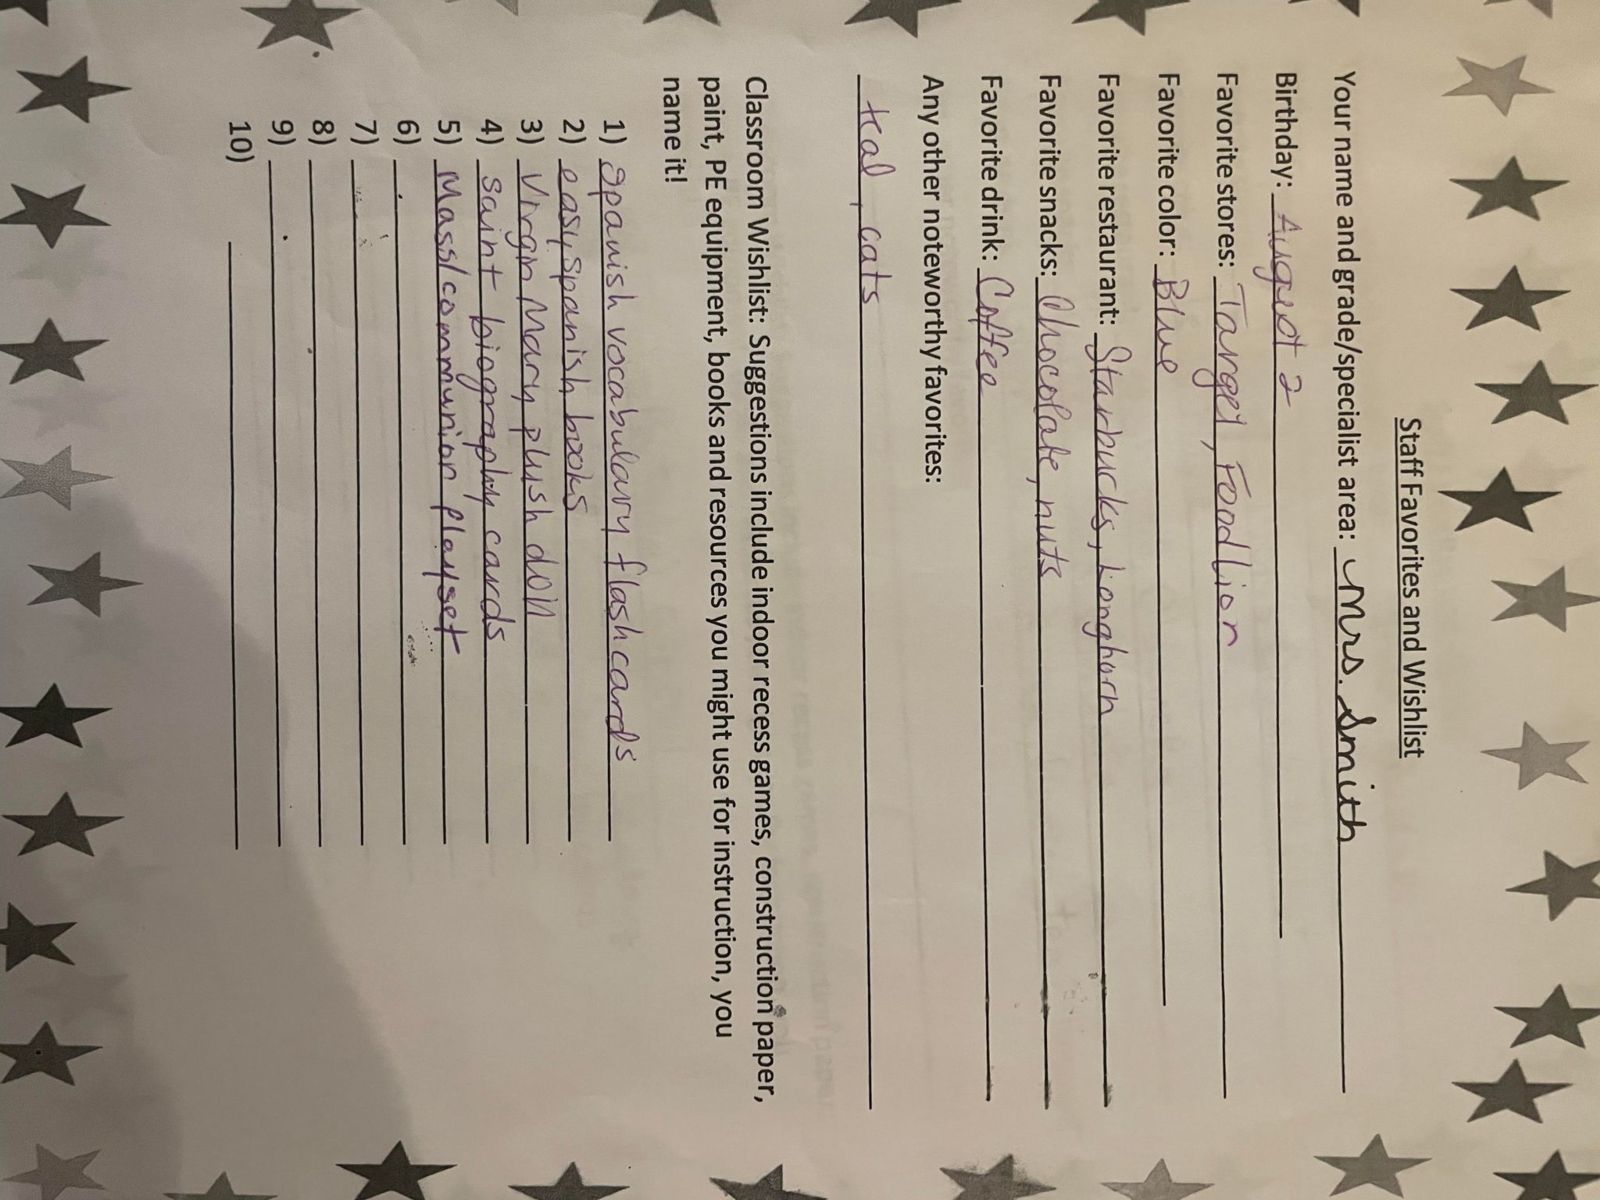 Staff Favorites and Wishlist
Your name and grade/specialist area: Mrs. Smith
Birthday: August 2
Favorite stores: Target, Food Lion
Favorite color: Blue
Favorite restaurant: Starbucks, Longhorn
Favorite snacks: Chocolate, nuts
Favorite drink: Coffee
Any other noteworthy favorites:
teal, cats
Classroom Wishlist: Suggestions include indoor recess games, construction paper,
paint, PE equipment, books and resources you might use for instruction, you
name it!
1) Spanish vocabulary flashcards
2) easy Spanish books
3) Virgin Mary plush doll
4) saint biography cards
5) Mass/communion playset
6)
7)
8)
9)
10)